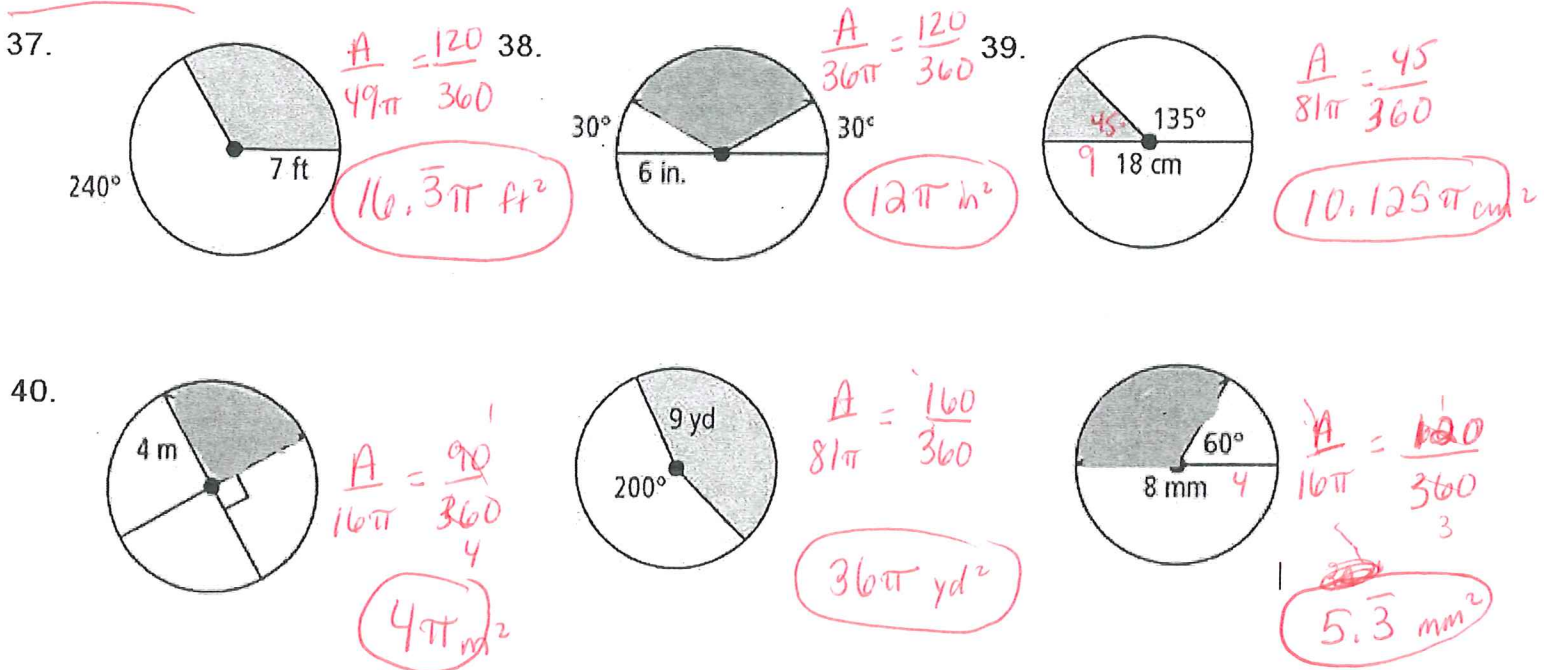 37.
240°
7 ft
A/49π = 120/360
16.3̅π ft²
38.
30°
30°
6 in.
A/36π = 120/360
12π in²
39.
45°
135°
9
18 cm
A/81π = 45/360
10.125π cm²
40.
4 m
A/16π = 90/360
1
4
4π m²
9 yd
200°
A/81π = 160/360
36π yd²
60°
8 mm
4
A/16π = 120/360
1
3
5.3̅ mm²